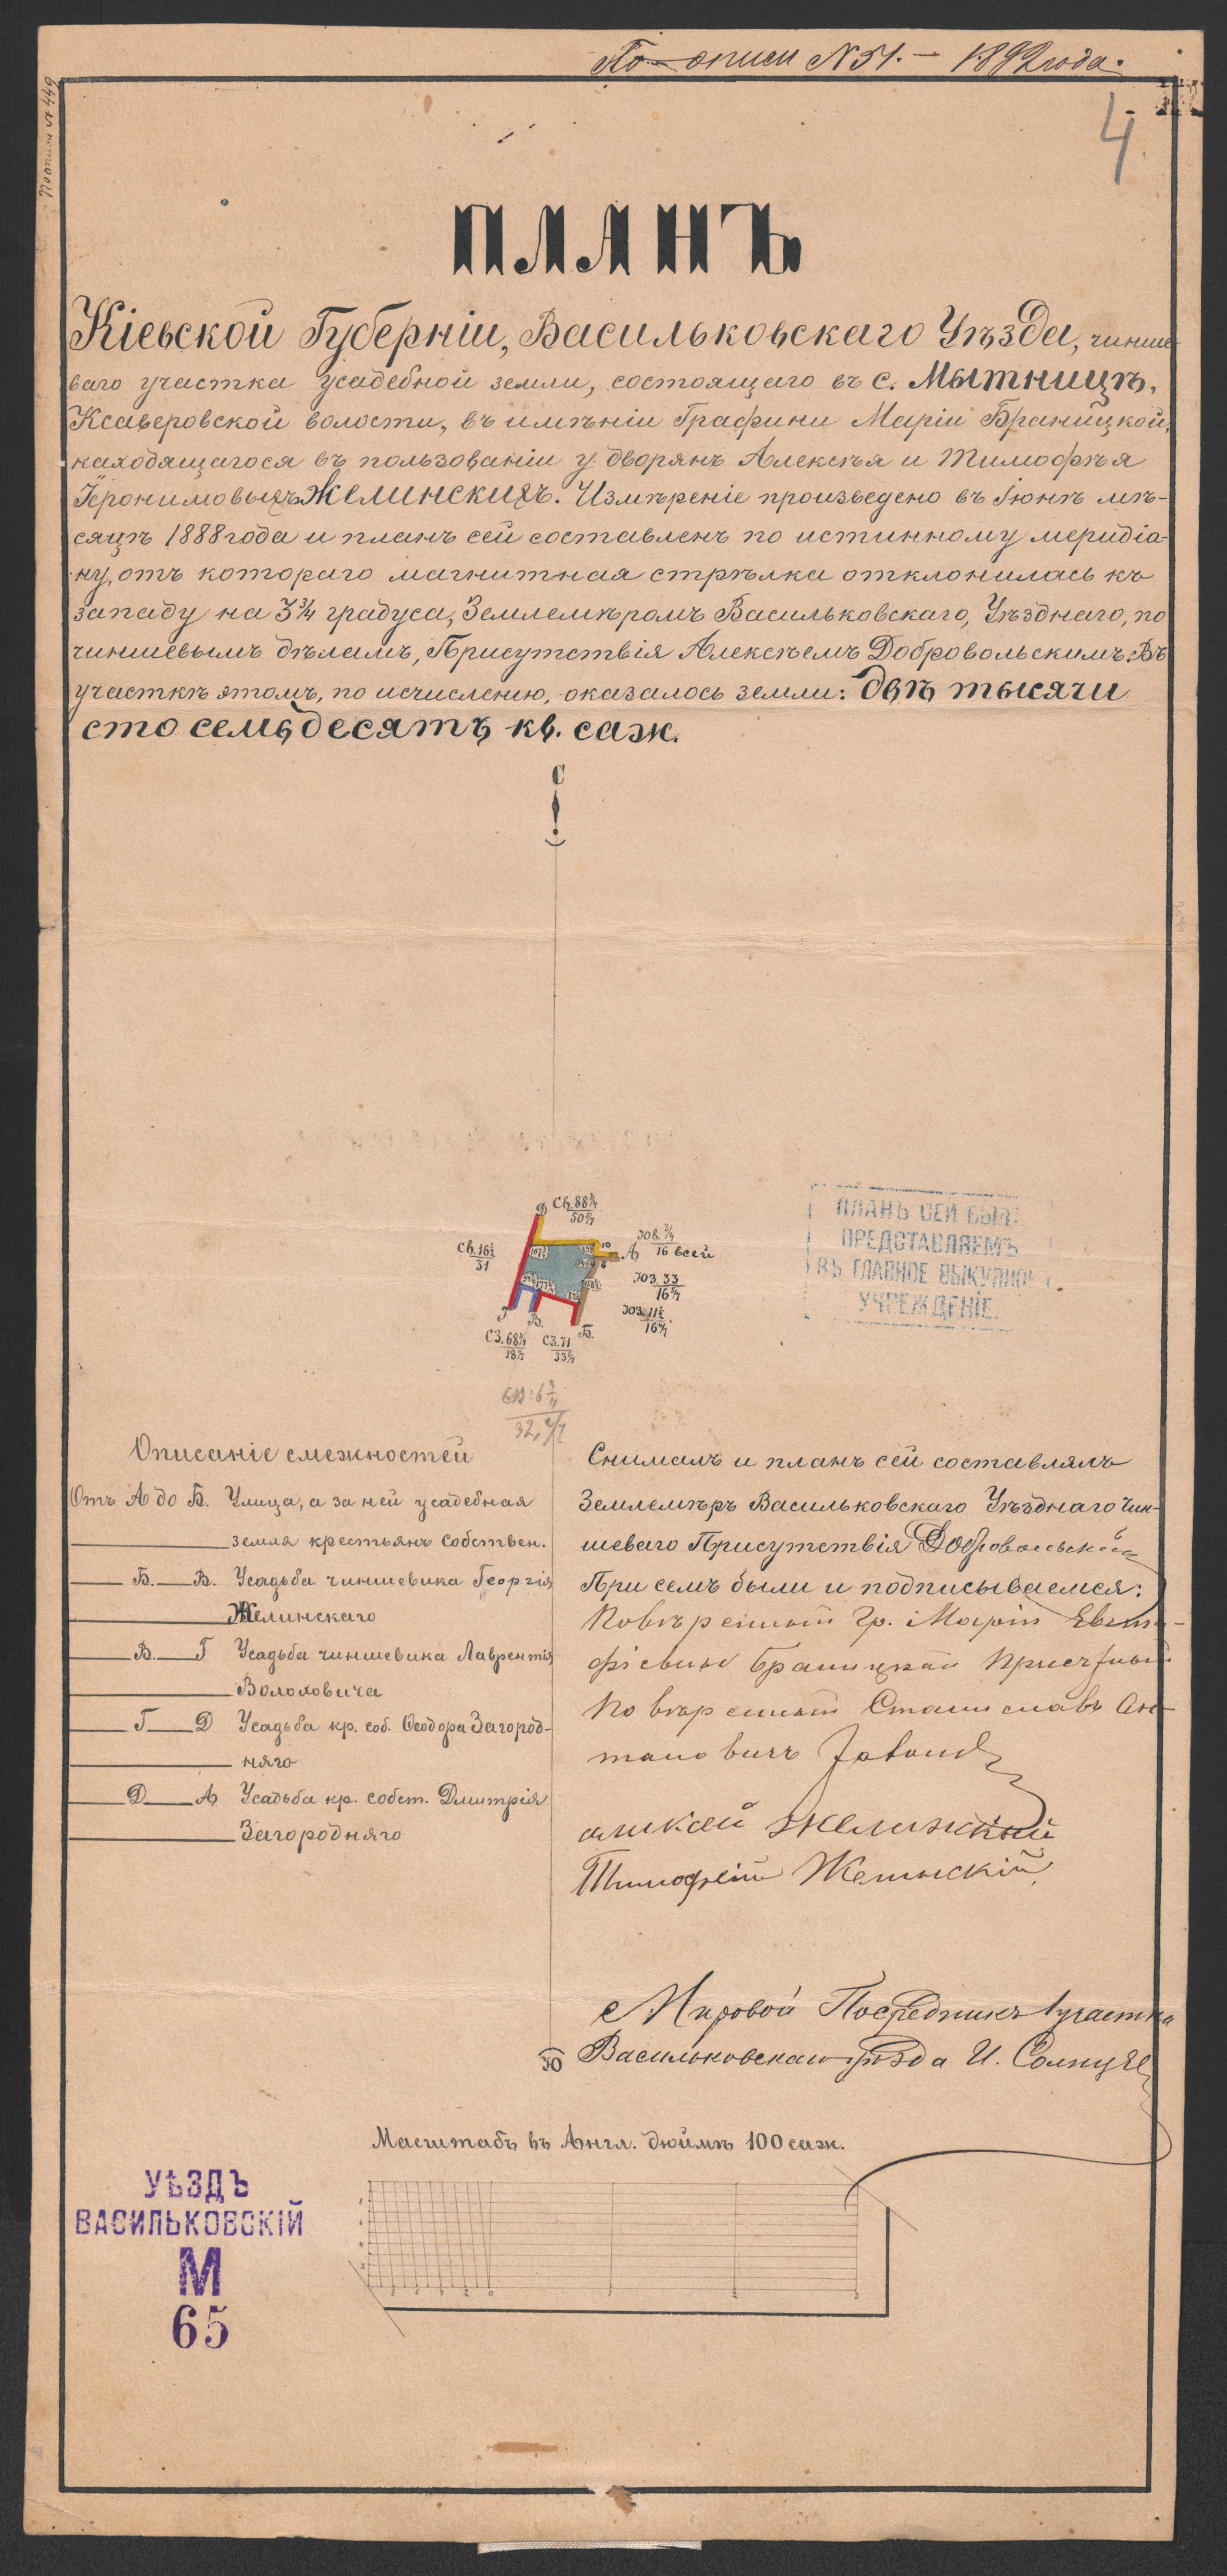 По описи N 51. — 1892 года.
По описи № 449
4
ПЛАНЪ
Кіевской Губерніи, Васильковскаго Уѣзда, чинше-
ваго участка усадебной земли, состоящаго въ с. Мытницѣ,
Ксаверовской волости, въ имѣніи Графини Маріи Браницкой,
находящагося въ пользованіи у дворянъ Алексѣя и Тимофѣя
Іеронимовыхъ Желинскихъ. Измѣреніе произведено въ Іюнѣ мѣ-
сяцѣ 1888 года и планъ сей составленъ по истинному меридіа-
ну, отъ котораго магнитная стрѣлка отклонилась къ
западу на 3 3/4 градуса, Землемѣромъ Васильковскаго, Уѣзднаго, по
чиншевымъ дѣламъ, Присутствія Алексѣемъ Добровольскимъ. Въ
участкѣ этомъ, по исчисленію, оказалось земли: двѣ тысячи
сто семьдесятъ кв. саж.
С
Д СВ. 88 3/4
50 2/7
ЮВ. 3/4
16 всей
СВ. 16 1/2
31
А
10
ЮЗ. 33
16 4/7
ЮЗ. 11 1/2
16 4/7
Г В. Б.
СЗ. 68 3/4 СЗ. 71
18 4/7 33 2/7
ПЛАНЪ СЕЙ БЫЛЪ
ПРЕДСТАВЛЯЕМЪ
ВЪ ГЛАВНОЕ ВЫКУПНОЕ
УЧРЕЖДЕНІЕ.
Описаніе смежностей
Отъ А до Б. Улица, а за ней усадебная
земля крестьянъ собствен.
Б. — В. Усадьба чиншевика Георгія
Желинскаго
В. — Г Усадьба чиншевика Лаврентія
Волоховича
Г — Д Усадьба кр. соб. Ѳеодора Загород-
няго
Д — А Усадьба кр. собст. Дмитрія
Загородняго
Снималъ и планъ сей составлялъ
Землемѣръ Васильковскаго Уѣзднаго Чин-
шеваго Присутствія Добровольскій
При семъ были и подписываемся:
Повѣренный Гр. Маріи Евста-
фіевны Браницкой Присяжный
Повѣренный Станиславъ Ан-
тоновичъ
Алексей Желинский
Тимофѣй Желинскій
Мировой Посредникъ 1 участка
Васильковскаго уѣзда И. Солнцевъ
Ю
Масштабъ въ Англ. дюймѣ 100 саж.
УѢЗДЪ
ВАСИЛЬКОВСКІЙ
М
65